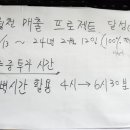 매출 프로젝트 달성
/13 ~ 24년 2월 12일 (100%
투자 시간
백시간 활용 4시 → 6시 30분